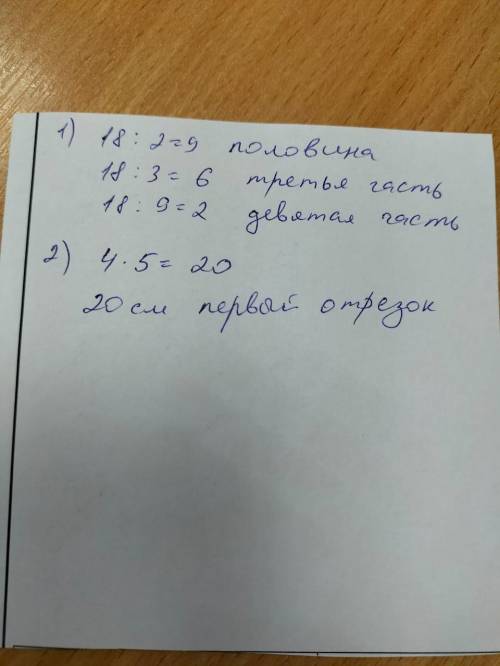 1) 18 : 2 = 9 половина
18 : 3 = 6 третья часть
18 : 9 = 2 девятая часть
2) 4 · 5 = 20
20 см первый отрезок